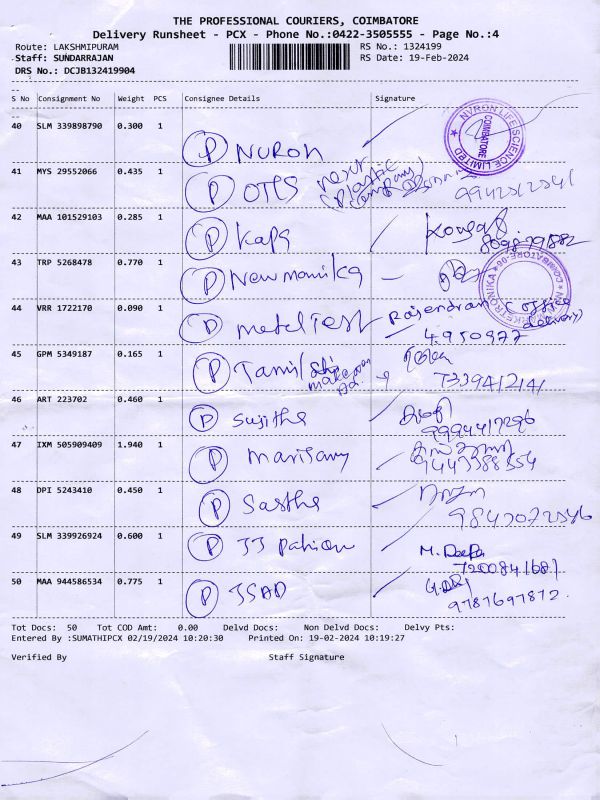 THE PROFESSIONAL COURIERS, COIMBATORE
Delivery Runsheet - PCX - Phone No.:0422-3505555 - Page No.:4
Route: LAKSHMIPURAM RS No.: 1324199
Staff: SUNDARRAJAN RS Date: 19-Feb-2024
DRS No.: DCJB132419904
S No Consignment No Weight PCS Consignee Details Signature
40 SLM 339898790 0.300 1 P NURON
NVRON LIFE SCIENCE LIMITED COIMBATORE
41 MYS 29552066 0.435 1 P OTCS next Plastic company
42 MAA 101529103 0.285 1 P Kapg
43 TRP 5268478 0.770 1 P New monika
44 VRR 1722170 0.090 1 P metel Test Rajendran (office delivery)
4.950977
45 GPM 5349187 0.165 1 P Tamil
46 ART 223702 0.460 1 P Sujithe
9994417296
47 IXM 505909409 1.940 1 P marisamy
9443388554
48 DPI 5243410 0.450 1 P Sasthe
49 SLM 339926924 0.600 1 P JJ pahion M. Deepa
7200841681
50 MAA 944586534 0.775 1 P JSAD
9787697872.
Tot Docs: 50 Tot COD Amt: 0.00 Delvd Docs: Non Delvd Docs: Delvy Pts:
Entered By :SUMATHIPCX 02/19/2024 10:20:30 Printed On: 19-02-2024 10:19:27
Verified By Staff Signature